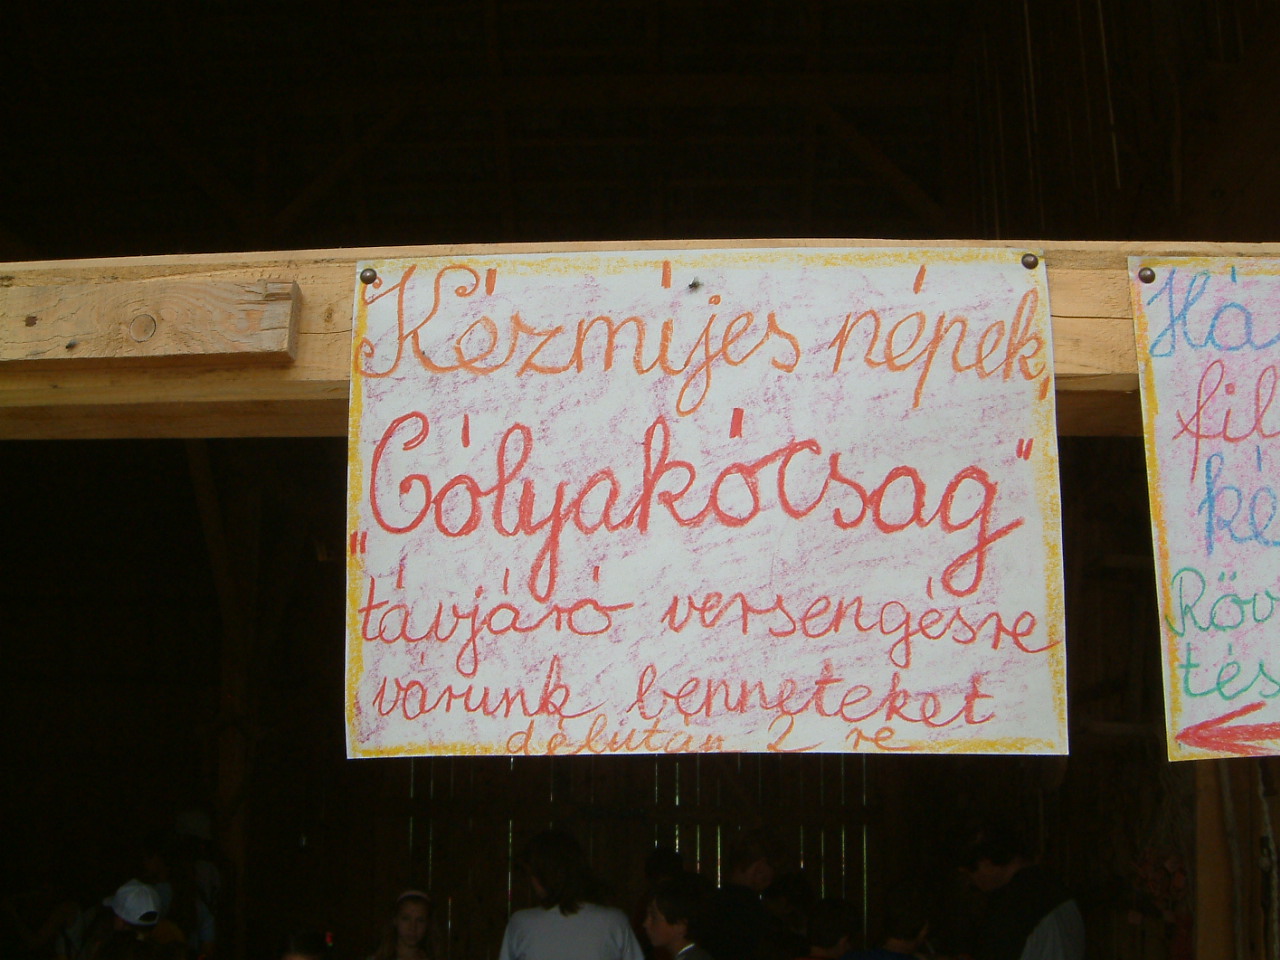 Kézmíjes népek,
„Gólyakócsag"
távjáró versengésre
várunk benneteket
délután 2 re
Há
fil
ké
Röv
tés